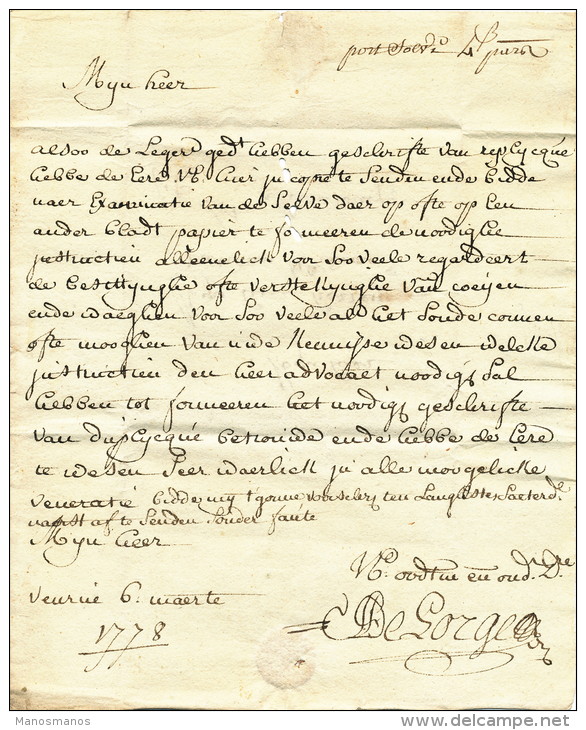 port solv: 4 p:
Myn heer
alsoo de Leger ged:t hebben geschrifte van replycque
hebbe de Eere Vl: hier in copie te senden ende bidde
naer Examinatie van de selve daer op ofte op een
ander bladt papier te formeeren de noodighe
instructien alleenelick voor soo veele regardeert
de besittynghe ofte verstellynghe van coeyen
ende waeghen voor soo veele als het soude connen
ofte moghen van uwe kennisse wesen welcke
instructien den heer advocaet noodigh sal
hebben tot formeeren het noodigh geschrifte
van duplycque betrouwe ende hebbe de Eere
te wesen seer waerlick in alle mogelicke
veneratie bidde my t'gonne voorschrev: ten Langhsten saeterd:
naerst af te senden sonder faute
Myn heer
Vl: oodtm: en ond: D:
veurne 6: maerte
1778
De Gorge
Manosmanos
www.delcampe.net